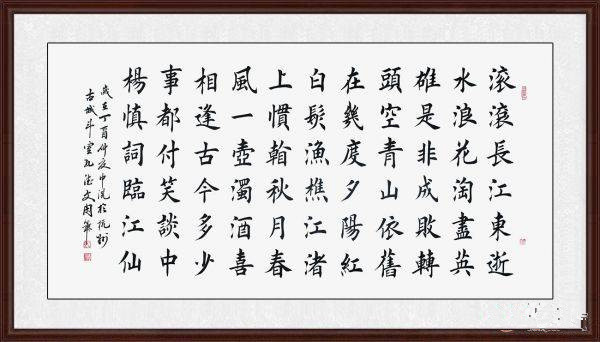 滾滾長江東逝
水浪花淘盡英
雄是非成敗轉
頭空青山依舊
在幾度夕陽紅
白髮漁樵江渚
上慣翰秋月春
風一壺濁酒喜
相逢古今多少
事都付笑談中
楊慎詞臨江仙
歲在丁酉仲夏中浣於杭州
古城斗室